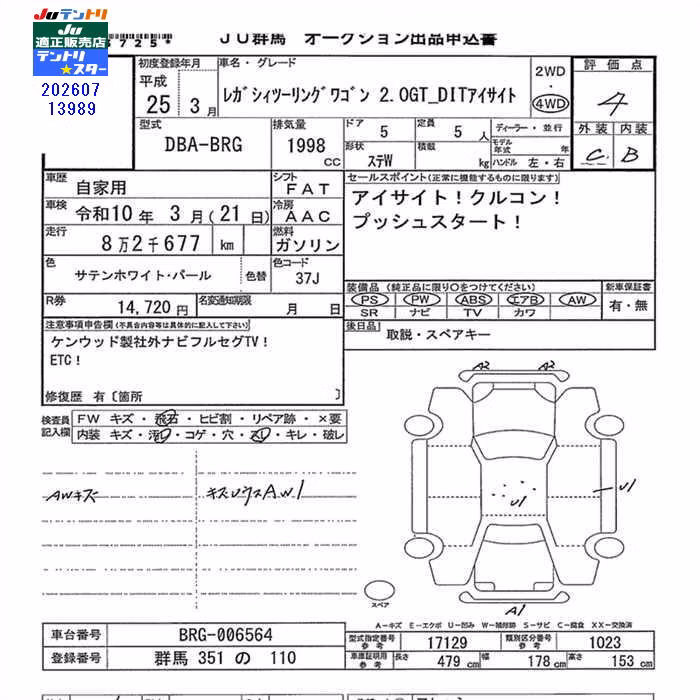 Juテントリ
Ju
適正販売店
テントリ
スター
202607
13989
3725*
JU群馬 オークション出品申込書
初度登録年月
平成
25 3月
車名・グレード
レガシィツーリングワゴン 2.0GT_DITアイサイト
2WD
・
4WD
評価点
4
外装 内装
C B
型式
DBA-BRG
排気量
1998
cc
ドア 5
定員 5 人
形状 ステW
積載 kg
ディーラー・並行
モデル年式 年
ハンドル 左・右
車歴 自家用
シフト FAT
車検 令和10年 3月(21日)
冷房 AAC
走行 8万2千677 km
燃料 ガソリン
色 サテンホワイト・パール
色替
色コード 37J
R券 14,720円
名変通知期限 月 日
セールスポイント(正常に機能するものに限ります)
アイサイト!クルコン!
プッシュスタート!
装備品(純正品に限り○をつけてください)
新車保証書
PS PW ABS エアB AW
SR ナビ TV カワ
有・無
後日品 取説・スペアキー
注意事項申告欄(不具合内容等は具体的に記入して下さい)
ケンウッド製社外ナビフルセグTV!
ETC!
修復歴 有〔箇所 〕
検査員
記入欄
FW キズ・飛石・ヒビ割・リペア跡・×要
内装 キズ・汚レ・コゲ・穴・スレ・キレ・破レ
AWキズ
キズUウスAW1
A2 A2
U1
U1
A1
スペア
A-キズ E-エクボ U-凹み W-補修跡 S-サビ C-腐食 XX-交換済
車台番号 BRG-006564
登録番号 群馬 351 の 110
型式指定番号 参考 17129
類別区分番号 参考 1023
車庫証明用 参考 長さ 479 cm 幅 178 cm 高さ 153 cm